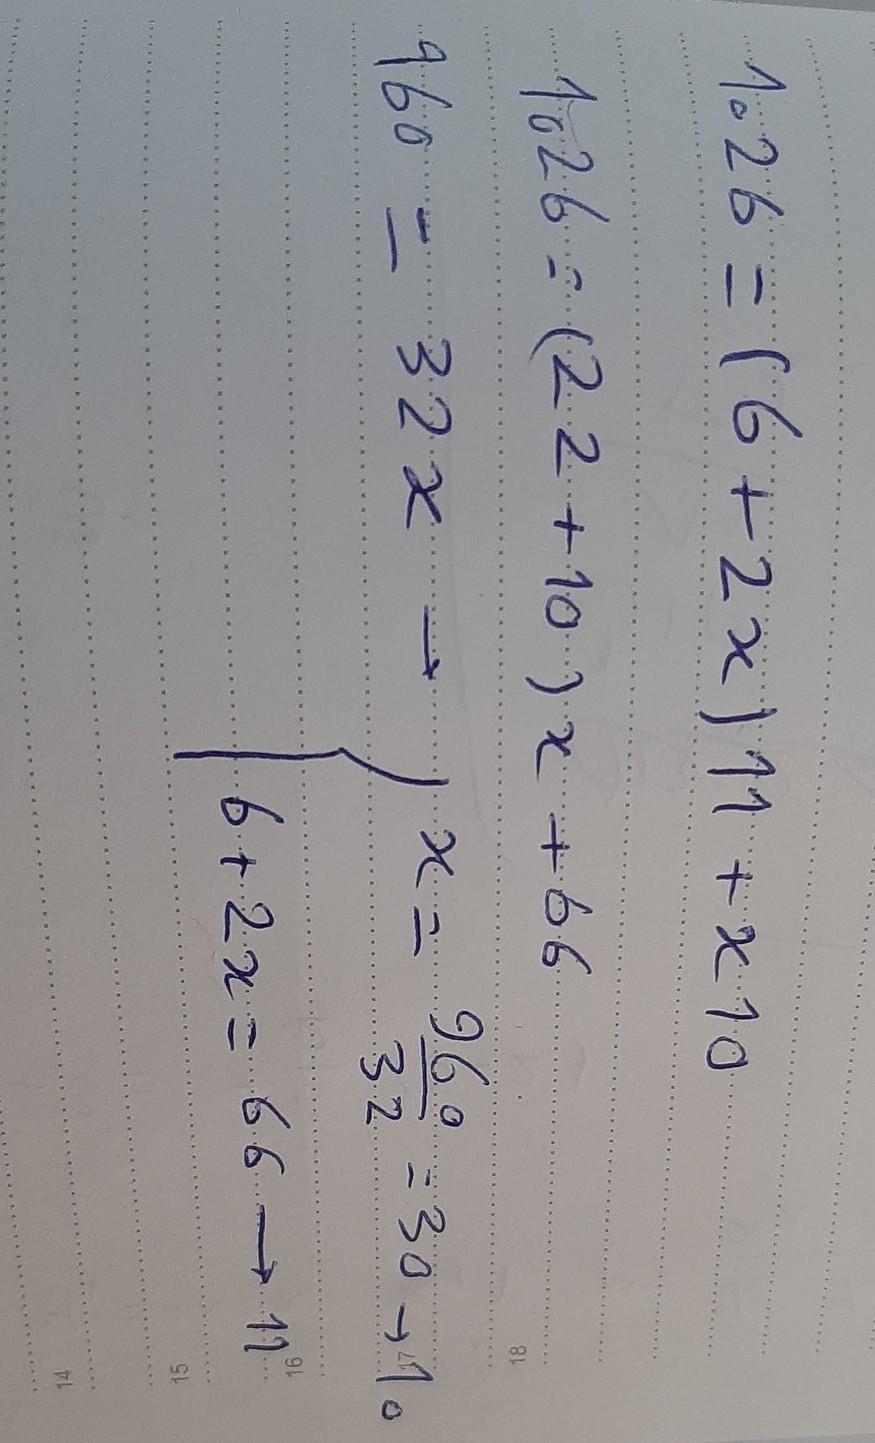 1026 = (6 + 2x) 11 + x10
1026 = (22 + 10) x + 66
960 = 32x → x = 960/32 = 30 → 10
6 + 2x = 66 → 11
18
17
16
15
14